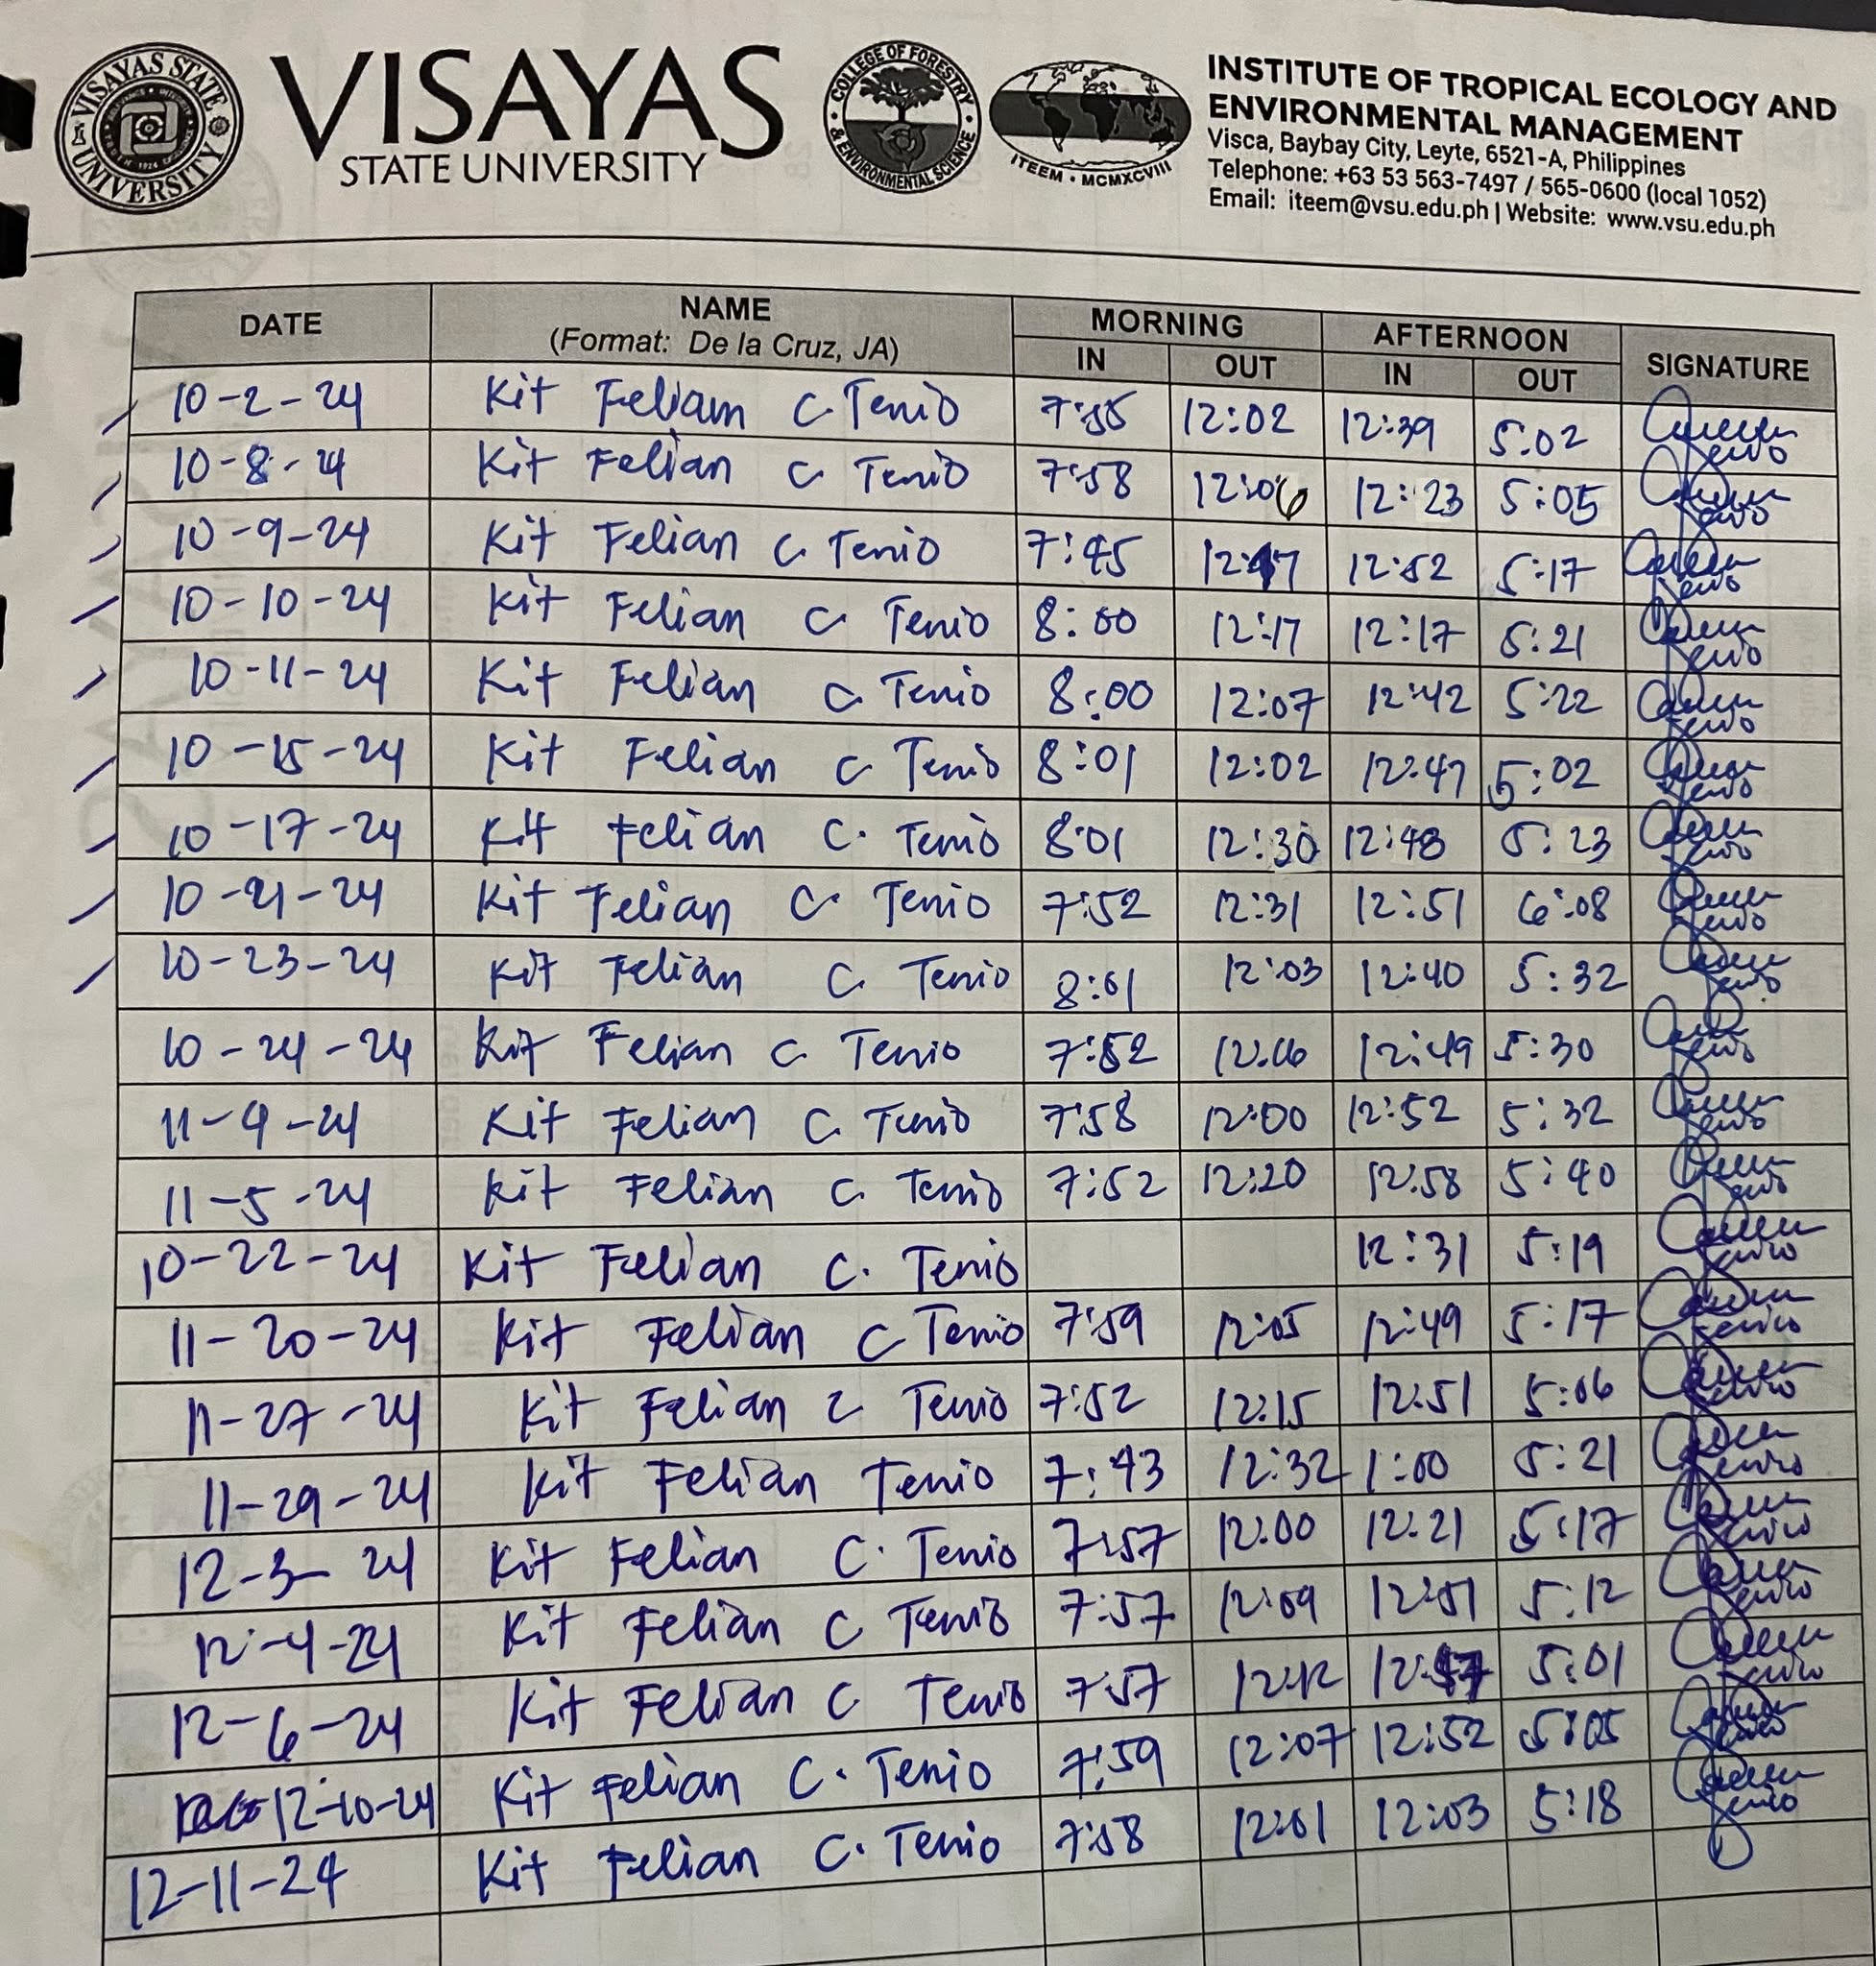 VISAYAS STATE UNIVERSITY
VISAYAS
STATE UNIVERSITY
COLLEGE OF FORESTRY & ENVIRONMENTAL SCIENCE
ITEEM • MCMXCVIII
INSTITUTE OF TROPICAL ECOLOGY AND
ENVIRONMENTAL MANAGEMENT
Visca, Baybay City, Leyte, 6521-A, Philippines
Telephone: +63 53 563-7497 / 565-0600 (local 1052)
Email: iteem@vsu.edu.ph | Website: www.vsu.edu.ph
DATE NAME MORNING AFTERNOON SIGNATURE
(Format: De la Cruz, JA) IN OUT IN OUT
10-2-24 Kit Feliam C. Tenio 7:55 12:02 12:39 5:02
10-8-24 Kit Felian C Tenio 7:58 12:06 12:23 5:05
10-9-24 Kit Felian C. Tenio 7:45 12:52 5:17
10-10-24 Kit Felian C Tenio 8:00 12:17 12:17 5:21
10-11-24 Kit Felian C Tenio 8:00 12:07 12:42 5:22
10-15-24 Kit Felian C Tenio 8:01 12:02 12:47 5:02
10-17-24 Kit Felian C. Tenio 8:01 12:30 12:48 5:23
10-21-24 Kit Felian C Tenio 7:52 12:31 12:51 6:08
10-23-24 Kit Felian C. Tenio 8:01 12:03 12:40 5:32
10-24-24 Kit Felian C. Tenio 7:52 12:49 5:30
11-4-24 Kit Felian C. Tenio 7:58 12:00 12:52 5:32
11-5-24 Kit Felian C. Tenio 7:52 12:20 12:58 5:40
10-22-24 Kit Felian C. Tenio 12:31 5:19
11-20-24 Kit Felian C Tenio 7:59 12:05 12:49 5:17
11-27-24 Kit Felian C Tenio 7:52 12:15 12:51 5:06
11-29-24 Kit Felian Tenio 7:43 12:32 1:00 5:21
12-3-24 Kit Felian C. Tenio 7:57 12:00 12:21 5:17
12-4-24 Kit Felian C Tenio 7:57 12:09 12:51 5:12
12-6-24 Kit Felian C Tenio 7:57 12:12 5:01
12-10-24 Kit Felian C. Tenio 7:59 12:07 12:52 5:05
12-11-24 Kit Felian C. Tenio 7:58 12:01 12:03 5:18